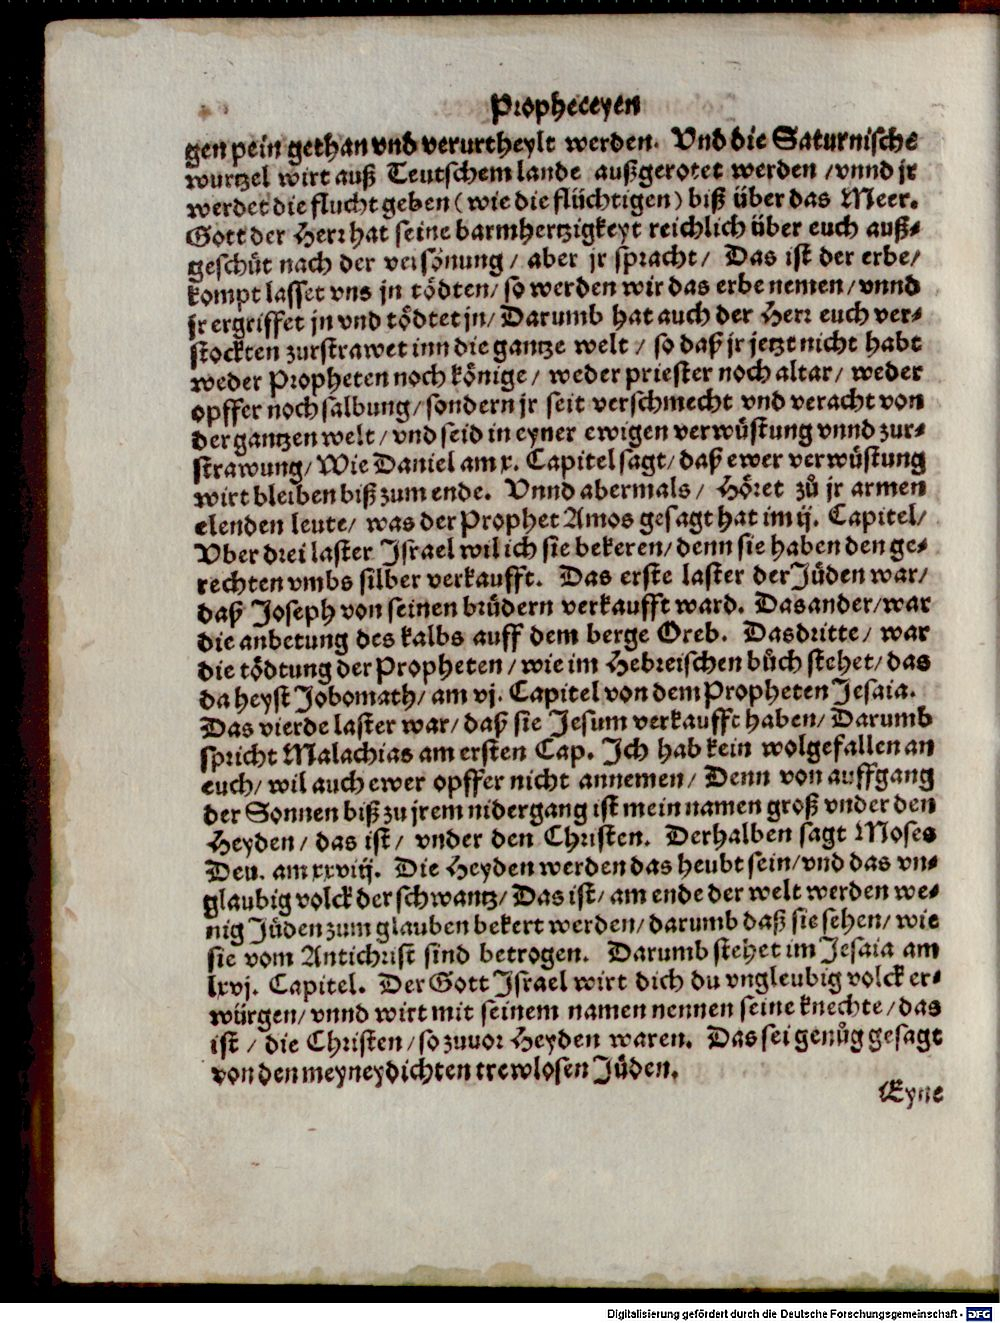 Propheceyen
gen pein gethan vnd verurtheylt werden. Vnd die Saturnische
wurtzel wirt auß Teutschem lande außgerotet werden / vnnd jr
werdet die flucht geben (wie die flüchtigen) biß über das Meer.
Gott der Herr hat seine barmhertzigkeyt reichlich über euch auß-
geschüt nach der versönung / aber jr spracht / Das ist der erbe /
kompt lasset vns jn tödten / so werden wir das erbe nemen / vnnd
jr ergriffet jn vnd tödtet jn / Darumb hat auch der Herr euch ver-
stockten zurstrawet inn die gantze welt / so daß jr jetzt nicht habt
weder Propheten noch könige / weder priester noch altar / weder
opffer noch salbung / sondern jr seit verschmecht vnd veracht von
der gantzen welt / vnd seid in eyner ewigen verwüstung vnnd zur-
strawung / Wie Daniel am x. Capitel sagt / daß ewer verwüstung
wirt bleiben biß zum ende. Vnnd abermals / Höret zů jr armen
elenden leute / was der Prophet Amos gesagt hat im ij. Capitel /
Vber drei laster Israel wil ich sie bekeren / denn sie haben den ge-
rechten vmbs silber verkaufft. Das erste laster der Jüden war /
daß Joseph von seinen brüdern verkaufft ward. Das ander / war
die anbetung des kalbs auff dem berge Oreb. Das dritte / war
die tödtung der Propheten / wie im Hebreischen bůch stehet / das
da heyst Jobomath / am vj. Capitel von dem Propheten Jesaia.
Das vierde laster war / daß sie Jesum verkaufft haben / Darumb
spricht Malachias am ersten Cap. Ich hab kein wolgefallen an
euch / wil auch ewer opffer nicht annemen / Denn von auffgang
der Sonnen biß zu jrem nidergang ist mein namen groß vnder den
Heyden / das ist / vnder den Christen. Derhalben sagt Moses
Deu. am xxviij. Die Heyden werden das heubt sein / vnd das vn-
glaubig volck der schwantz / Das ist / am ende der welt werden we-
nig Jüden zum glauben bekert werden / darumb daß sie sehen / wie
sie vom Antichrist sind betrogen. Darumb stehet im Jesaia am
lxvj. Capitel. Der Gott Israel wirt dich du vngleubig volck er-
würgen / vnnd wirt mit seinem namen nennen seine knechte / das
ist / die Christen / so zuuor Heyden waren. Das sei genůg gesagt
von den meyneydichten trewlosen Jüden.
Eyne
Digitalisierung gefördert durch die Deutsche Forschungsgemeinschaft - DFG